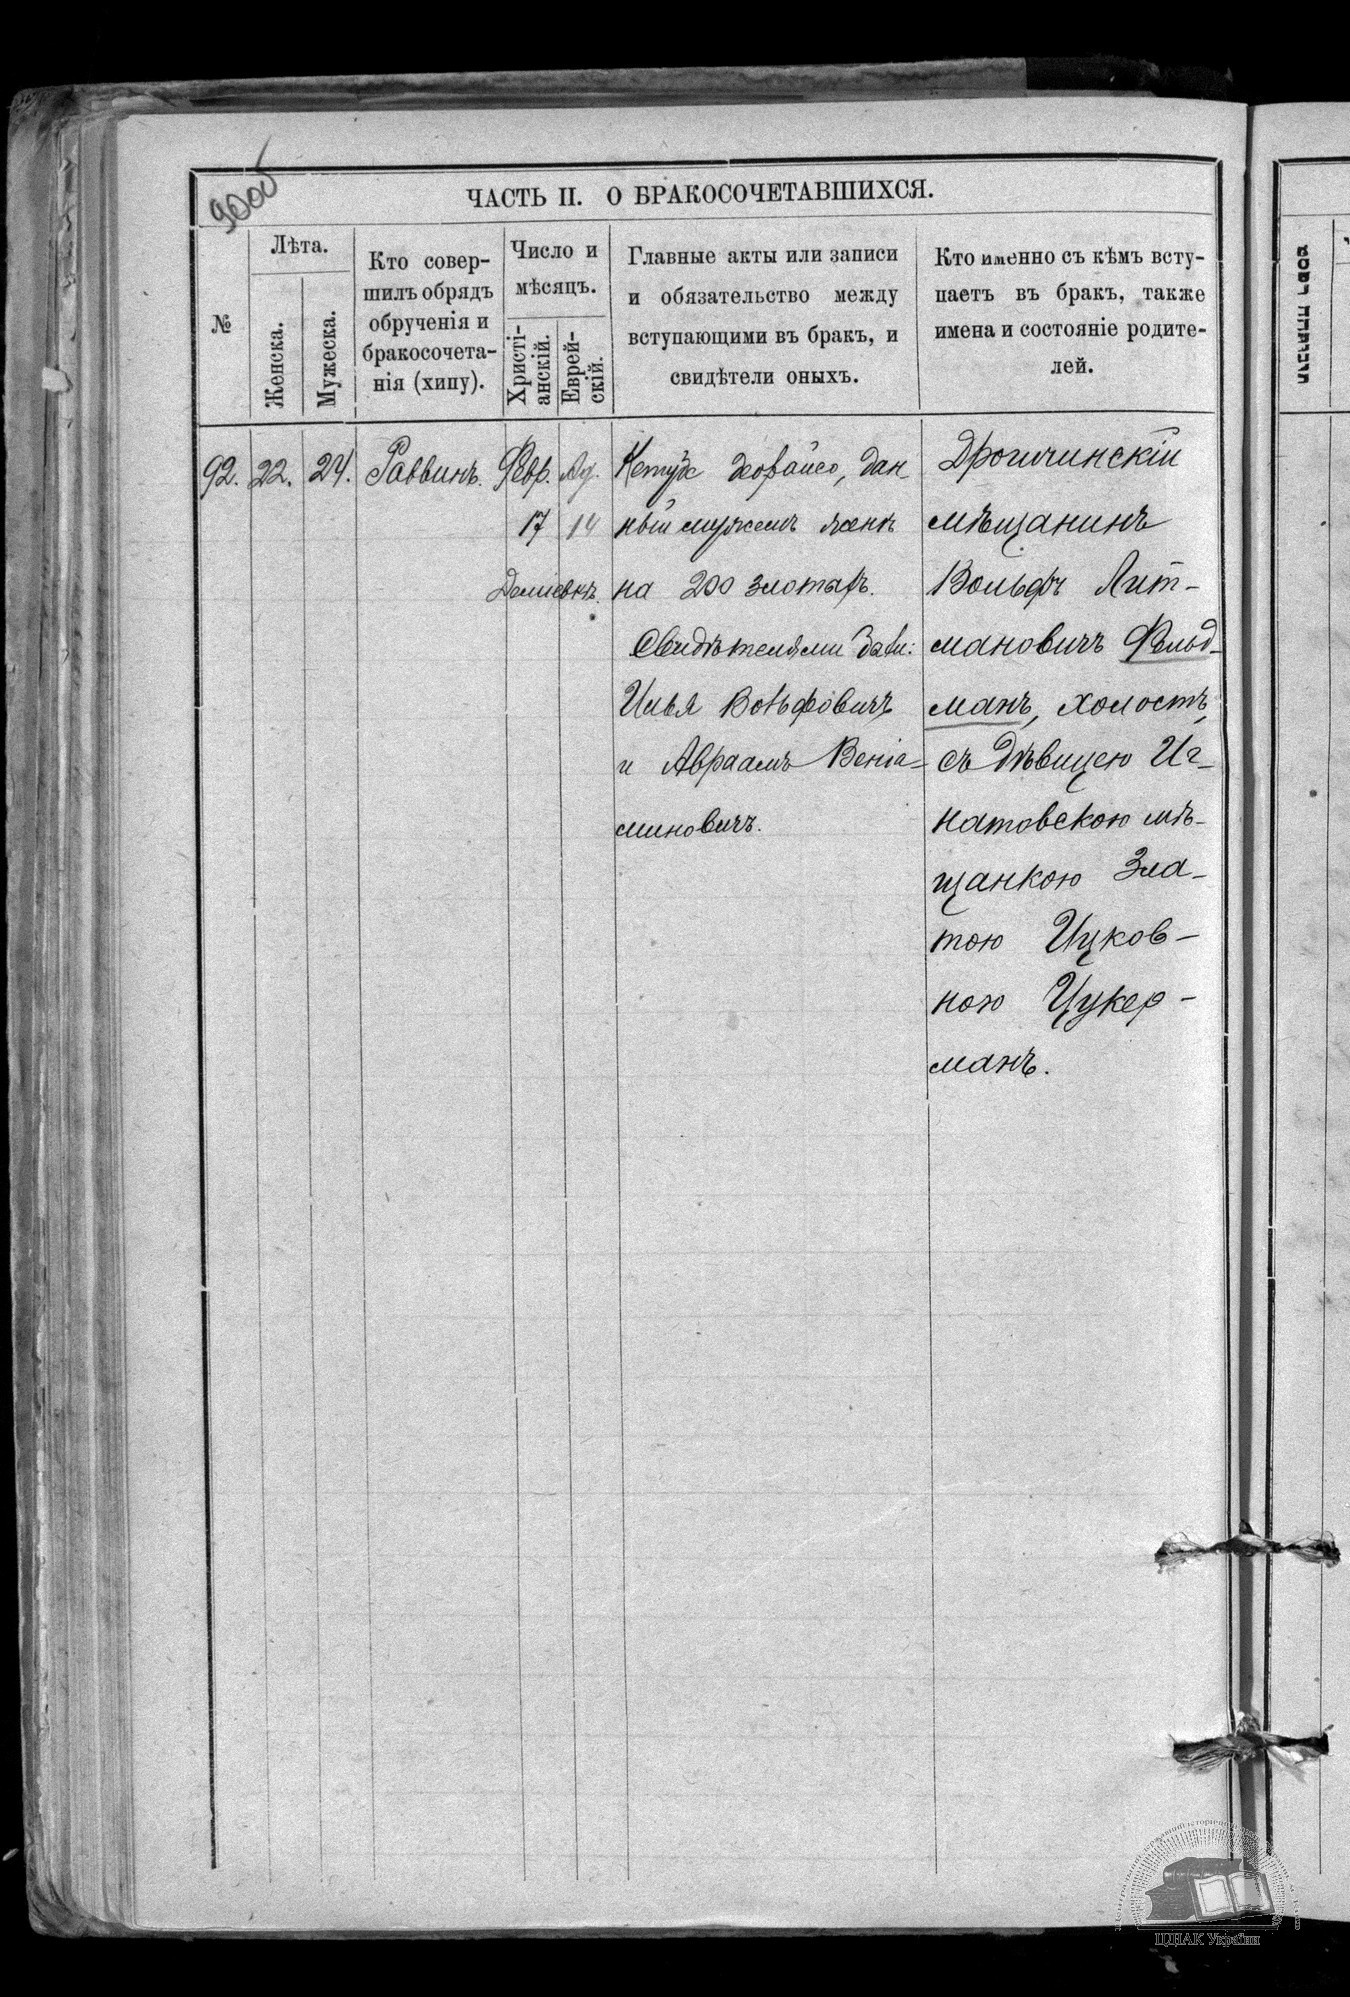 90об
ЧАСТЬ II. О БРАКОСОЧЕТАВШИХСЯ.
№
Лѣта.
Женска.
Мужеска.
Кто совер-
шилъ обрядъ
обрученія и
бракосочета-
нія (хипу).
Число и
мѣсяцъ.
Христі-
анскій.
Еврей-
скій.
Главные акты или записи
и обязательство между
вступающими въ бракъ, и
свидѣтели оныхъ.
Кто именно съ кѣмъ всту-
паетъ въ бракъ, также
имена и состояніе родите-
лей.
92.
22.
24.
Раввинъ.
Февр.
17
Ад.
14
Деміевкѣ.
дан-
ный мужемъ женѣ
на 200 злотыхъ.
Свидѣтелями были:
Илья Вольфовичъ
и Авраамъ Веніа-
миновичъ.
Дрогичинскій
мѣщанинъ
Вольфъ Лит-
мановичъ Фельд-
манъ, холостъ,
съ дѣвицею Иг-
натовскою мѣ-
щанкою Зла-
тою Ицков-
ною Цукер-
манъ.
ЦДІАК України